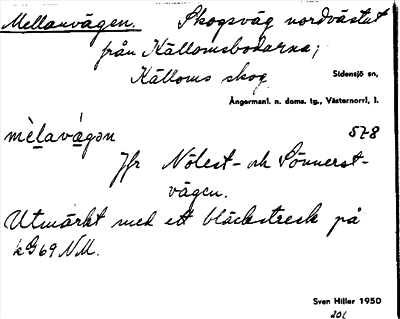 Mellanvägen. Skogsväg nordvästut
från Källomsbodarna;
Källoms skog
Sidensjö sn,
Ångermanl. n. doms. tg., Västernorrl. l.
mèlavágən 578
Jfr Nölest- och Sönnerst-
vägen.
Utmärkt med ett bläckstreck på
kG69 NM.
Sven Hiller 1950